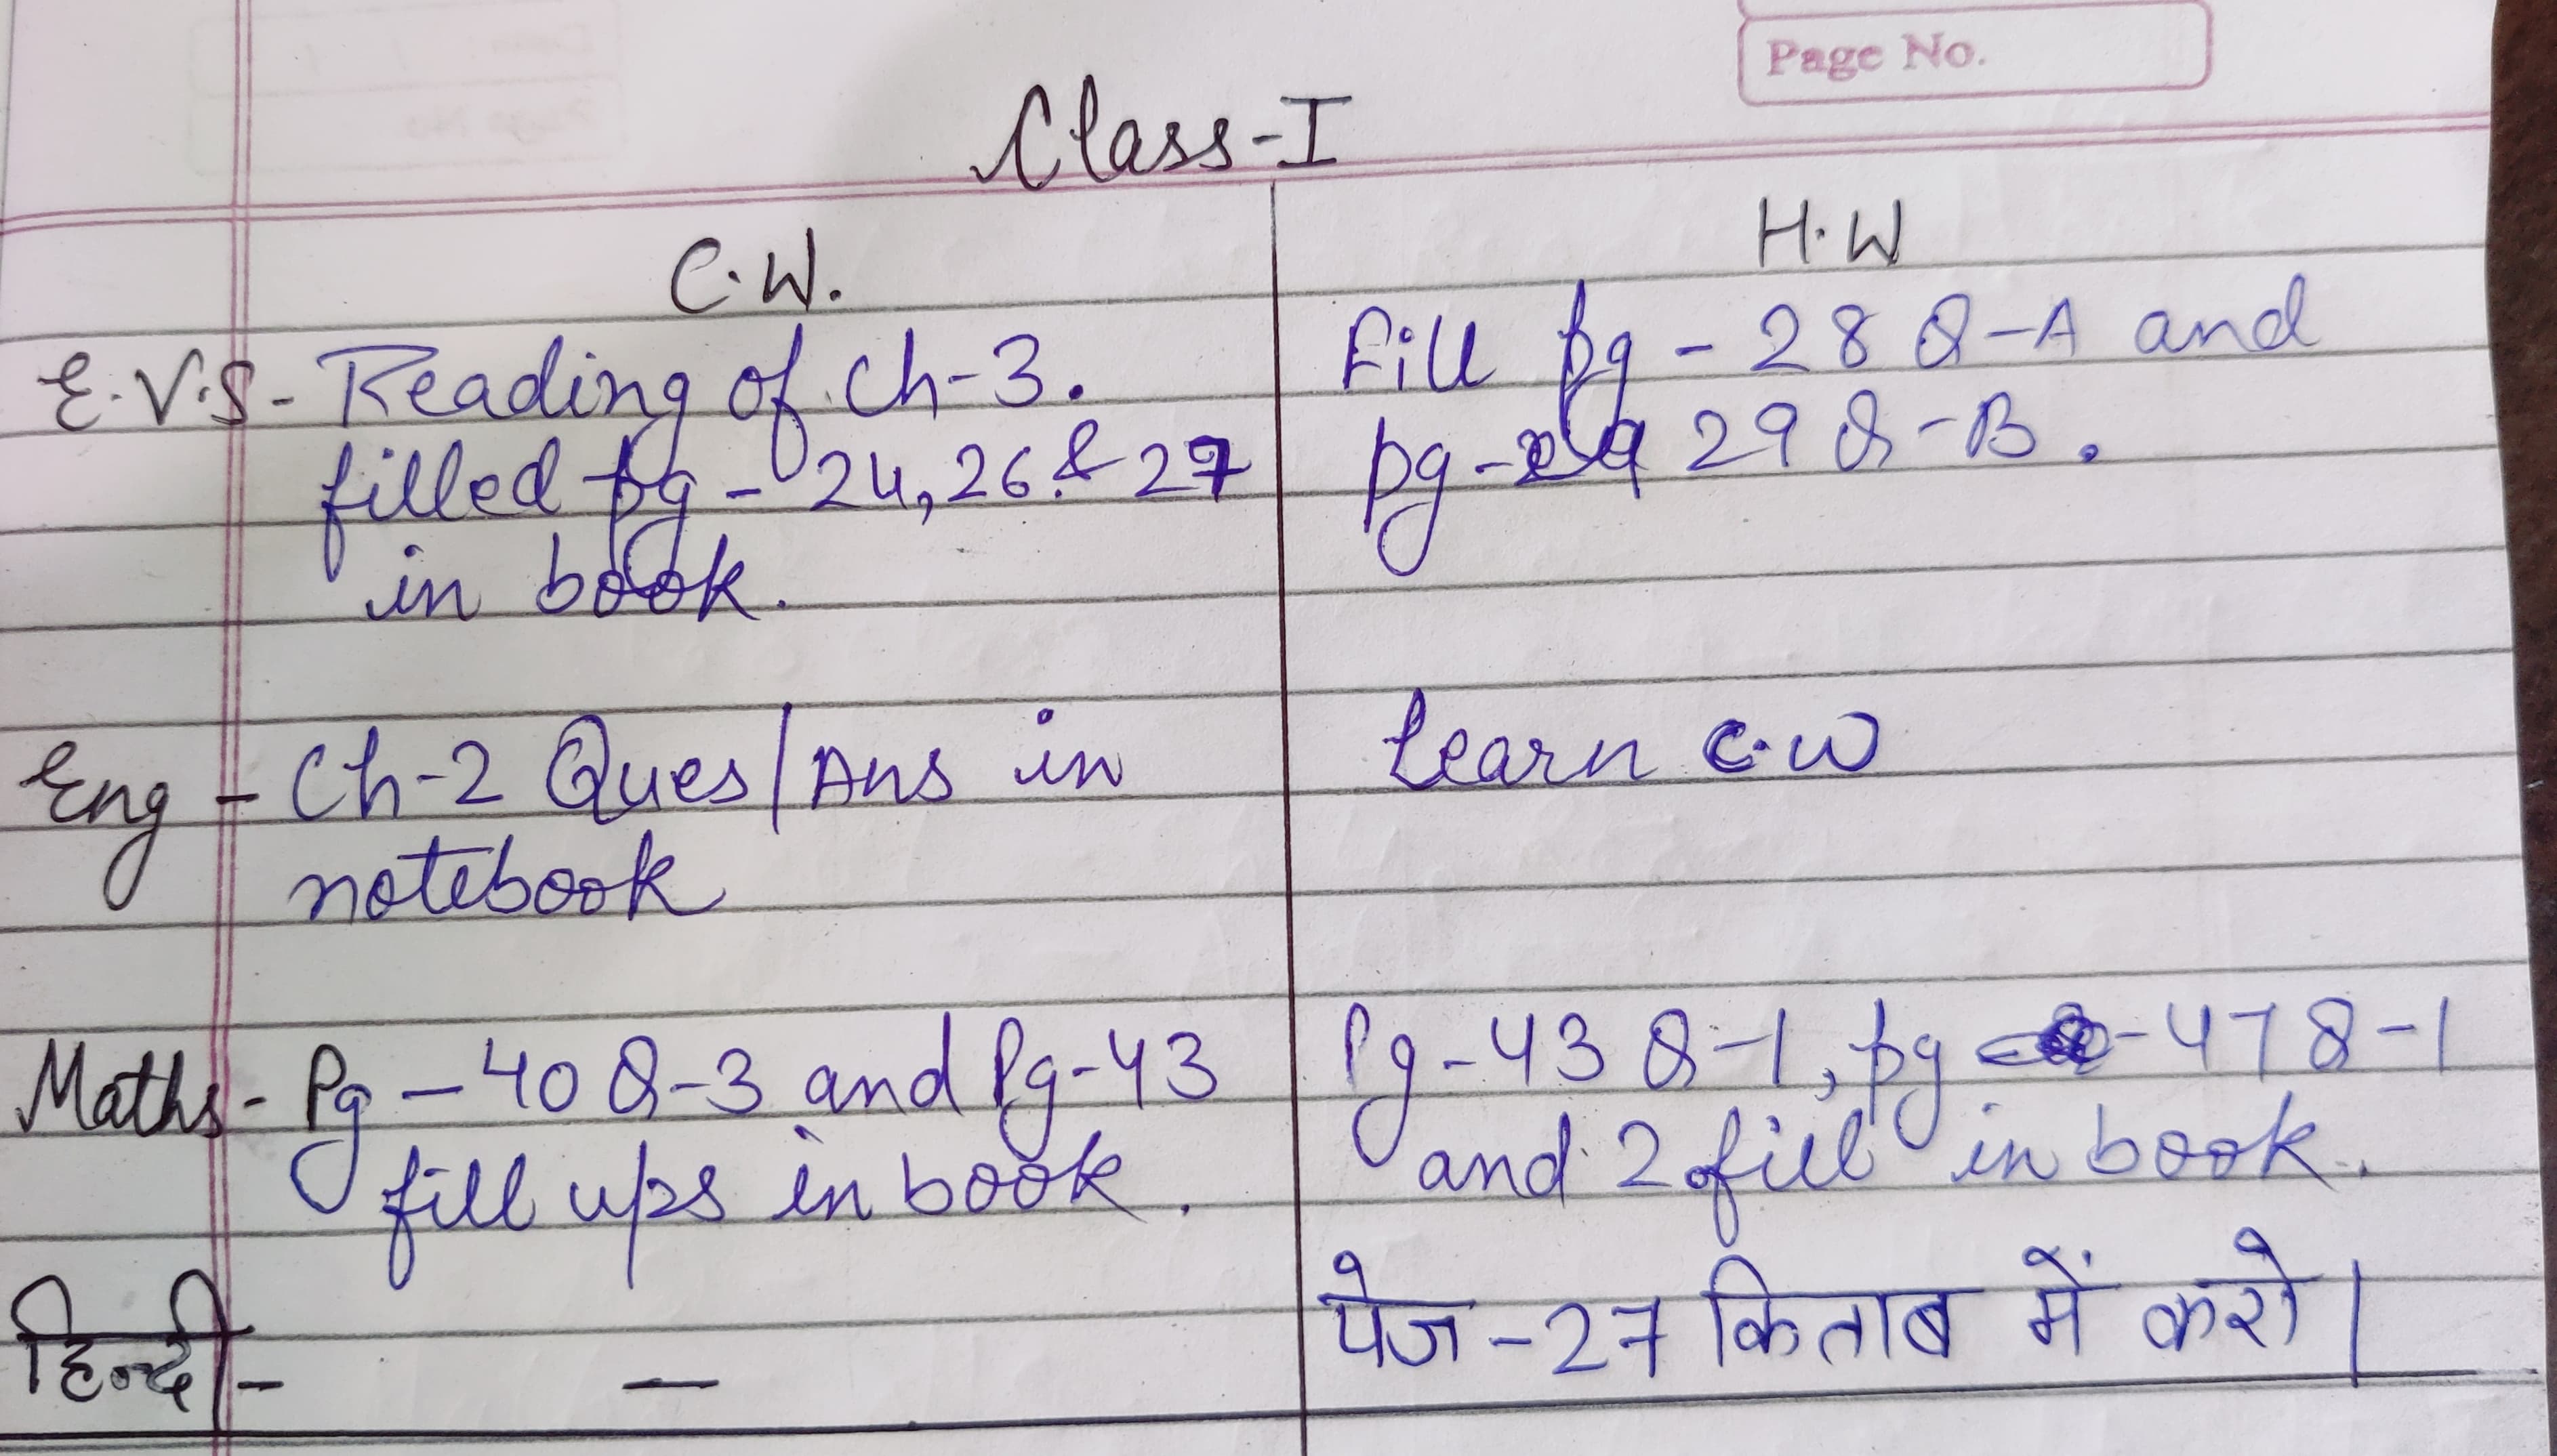 Page No.
Class-I
C.W.
H.W
E.V.S- Reading of Ch-3.
filled pg - 24, 26 & 27
in book.
Fill pg - 28 Q-A and
pg - 29 Q-B.
Eng - Ch-2 Ques/Ans in
notebook
learn C.W
Maths- Pg - 40 Q-3 and Pg-43
fill ups in book.
Pg-43 Q-1, pg -47 Q-1
and 2 fill in book.
हिन्दी- —
पेज-27 किताब में करो।